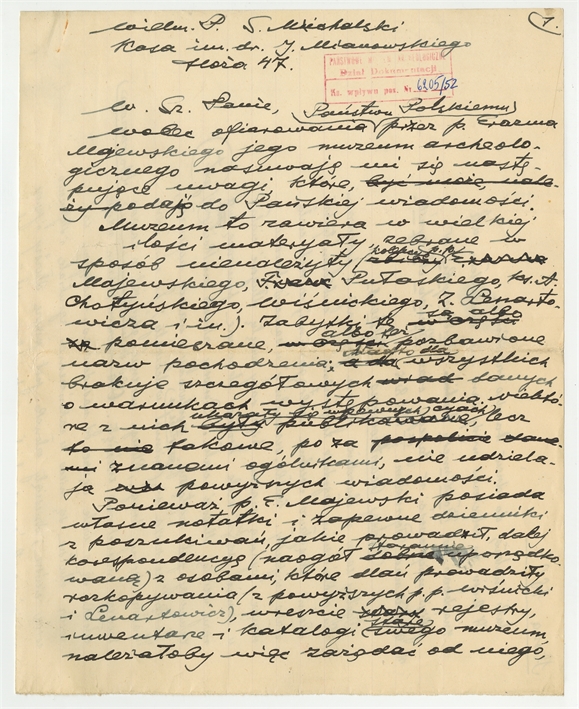 1.
Wielm. P. S. Michalski
Kasa im. dr. J. Mianowskiego
Hoża 47.
Dział Dokumentacji
Nr. wpływu pos. Nr. 6205/52
W. Sz. Panie,
Państwu Polskiemu
Wobec ofiarowania przez p. Erazma
Majewskiego jego muzeum archeolo-
gicznego nasuwają mi się nastę-
pujące uwagi, które, być może, nale-
ży podaję do Pańskiej wiadomości.
Muzeum to zawiera w wielkiej
ilości materyały zebrane w
sposób nienależyty (
Majewskiego, Pułaskiego, ks. A.
Chotyńskiego, Wiśnickiego, Z. Lenarto-
wicza i in.). Zabytki te są albo
pomieszane, albo też pozbawione
nazw pochodzenia; wszystkich
brakuje szczegółowych danych
o warunkach występowania. Niektó-
re z nich publikowane, lecz
takowe, poza
znanemi ogólnikami, nie udziela-
ją powyższych wiadomości.
Ponieważ p. E. Majewski posiada
własne notatki i zapewne dzienniki
z poszukiwań, jakie prowadził, dalej
korespondencyę (naogół uporządko-
waną) z osobami, które dlań prowadziły
rozkopywania (z powyższych p.p. Wiśnicki
i Lenartowicz), wreszcie rejestry,
inwentarze i katalogi swego muzeum,
należałoby więc zażądać od niego,